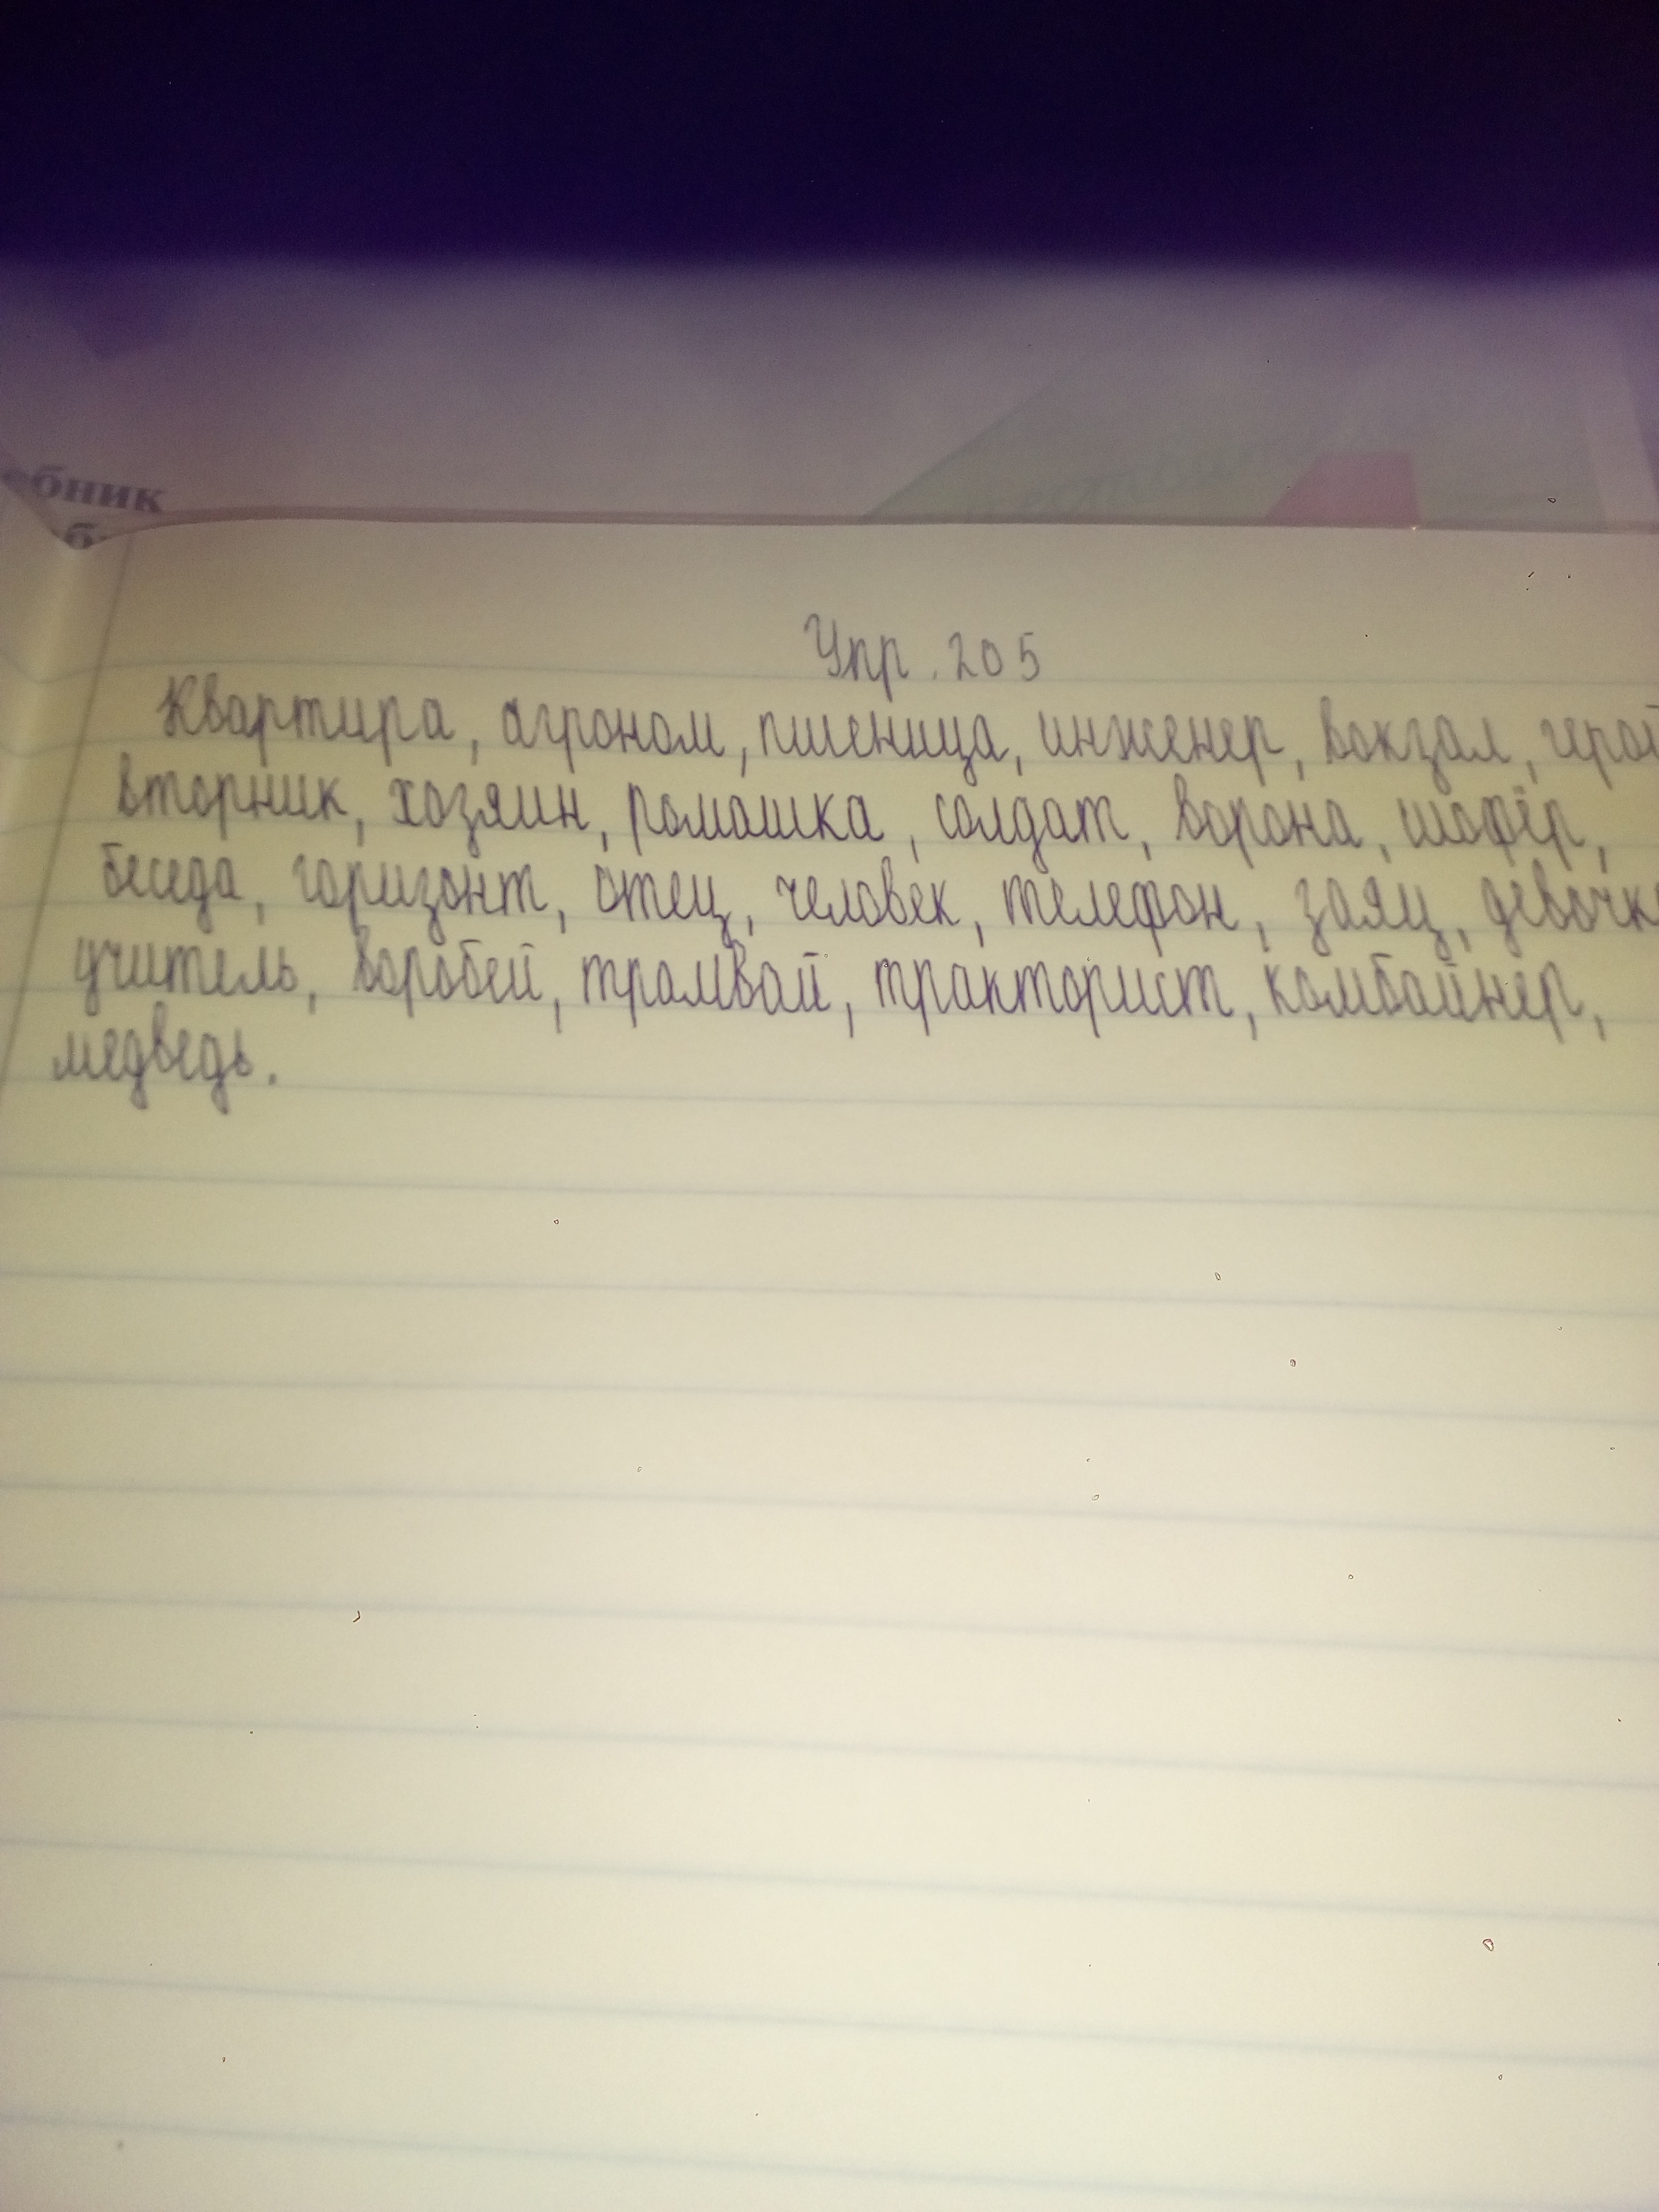 ебник
Упр. 205
Квартира, агроном, пшеница, инженер, вокзал, герой
вторник, хозяин, ромашка, солдат, ворона, шофёр,
беседа, горизонт, отец, человек, телефон, заяц, девочк
учитель, воробей, трамвай, тракторист, комбайнер,
медведь.